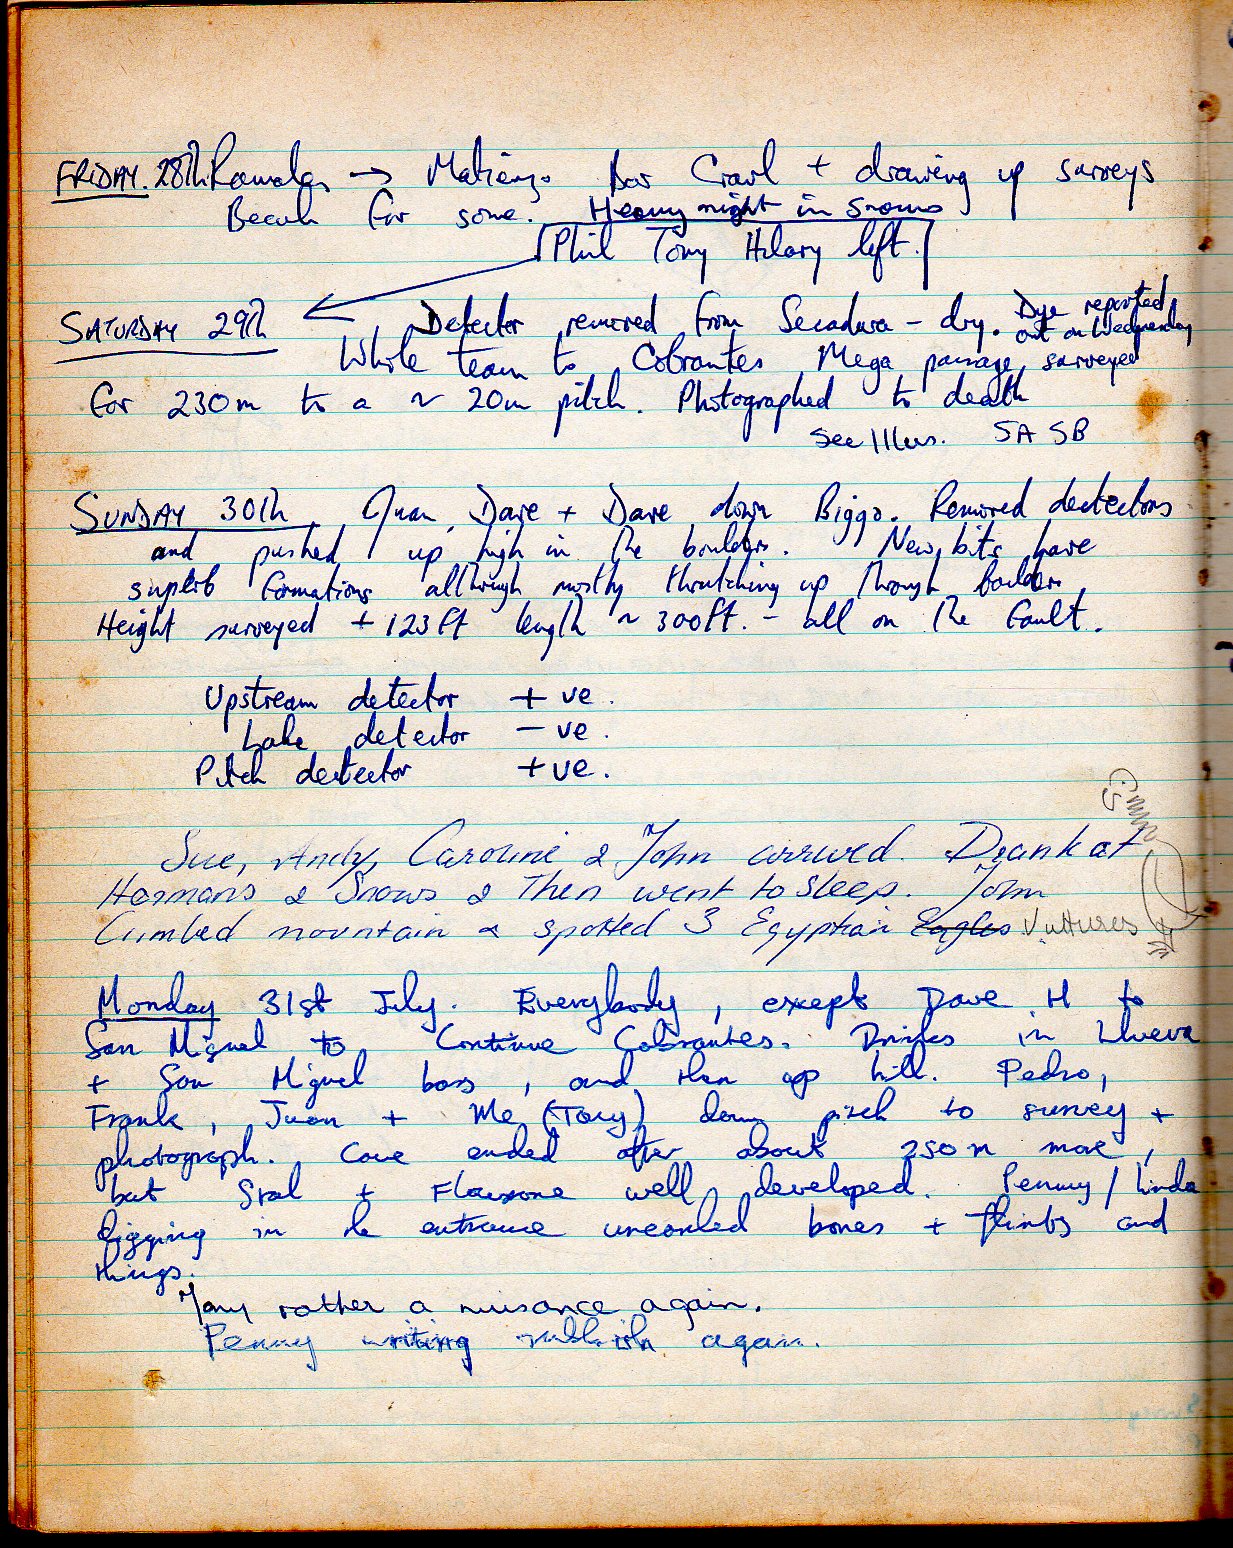 FRIDAY. 28th Ramales → Matienzo Bar Crawl + drawing up surveys
Beach for some. Heavy night in Snows
Phil Tony Hilary left.
SATURDAY 29th Detector removed from Secadura - dry. Dye reported
out on Wednesday
Whole team to Cobrantes Mega passage surveyed
for 230m to a ~ 20m pitch. Photographed to death
see Illus. SA SB
SUNDAY 30th, Juan, Dave + Dave down Riggo. Removed detectors
and pushed up high in the boulders. New bits have
superb formations allthough mostly thrutching up through boulders
Height surveyed +123ft length ~ 300ft. - all on the fault.
Upstream detector +ve.
Lake detector -ve.
Pitch dectector +ve.
Sue, Andy, Caroline & John arrived. Drank at
Hermans & Snows & then went to sleep. John
Climbed mountain & spotted 3 Egyptain Eagles Vultures
Monday 31st July. Everybody, except Dave H to
San Miguel to Continue Cobrantes. Drinks in Llueva
+ San Miguel bars, and then up hill. Pedro,
Frank, Juan + Me (Tony) down pitch to survey +
photograph. Cave ended after about 250m more,
but Stal + Flowstone well developed. Penny/Linda
digging in the entrance unearthed bones + flints and
things.
Tony rather a nuisance again.
Penny writing rubbish again.